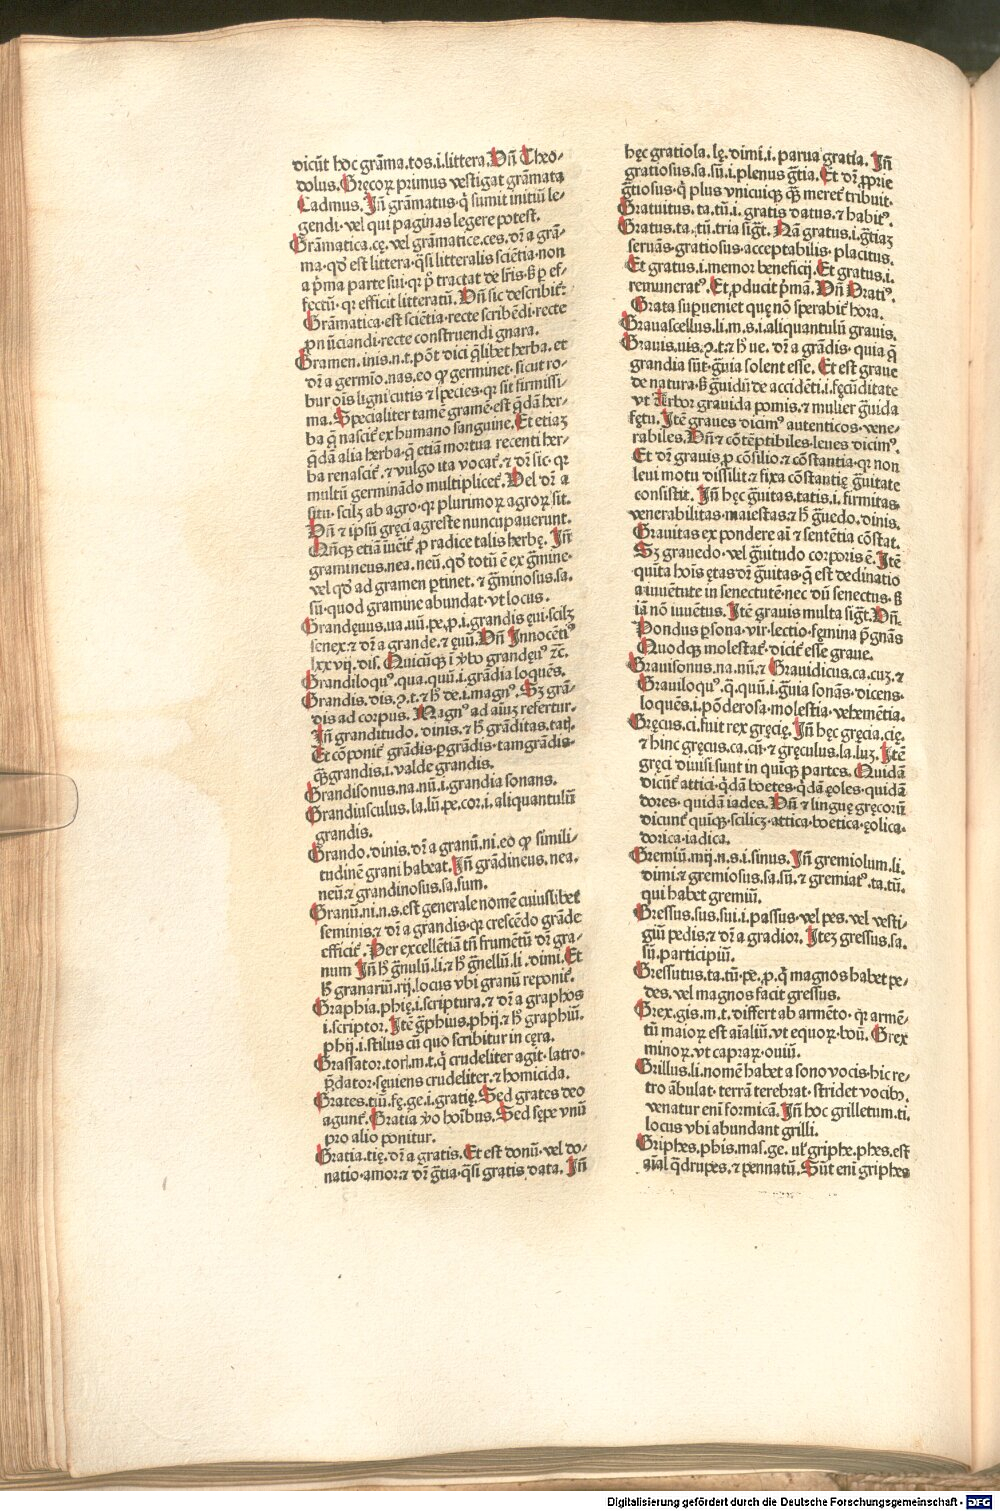 dicūt hoc grāma.tos.i.littera.Vñ Theo-
dolus.Gręcoꝝ primus vestigat grāmata
Cadmus.Iñ grāmatus·q̇ sumit initiū le-
gendi·vel qui paginas legere potest.
Grāmatica.cę.vel grāmatice.ces.dr̄.a grā-
ma·qď est littera·q̄si litteralis sciētia·non
a p̄ma parte sui·qꝛ p̄ tractat de lr̄is·ß ꝑ ef-
fectū·qꝛ efficit litteratū.Vñ sic describit᷑:
Grāmatica·est sciētia·recte scribēdi·recte
ꝓnūciandi·recte construendi gnara.
Gramen.inis.n.t.pōt dici q̄libet herba.et
dr̄.a germīo.nas.eo ꝙ germinet·sicut ro-
bur oīs ligni cutis ⁊ species·qꝛ sit firmissi-
ma.Specialiter tamē gramē·est q̄dā her-
ba q̄ nascit᷑ ex humano sanguine.Et etiaꝫ
q̄dā alia herba·q̄ etiā mortua recenti her-
ba renascit᷑.⁊ vulgo ita vocat᷑.⁊ dr̄.sic·qꝛ
multū germinādo multiplicet᷑.Vel dr̄.a
situ·scilꝫ ab agro·qꝛ plurimoꝝ agroꝝ sit.
Vñ ⁊ ipsū gręci agreste nuncupauerunt.
Quñqꝫ etiā īuēit᷑ ꝓ radice talis herbę.Iñ
gramineus.nea.neū.qď totū ē ex g̃mine·
vel qď ad gramen ꝑtinet.⁊ g̃minosus.sa.
sū·quod gramine abundat·vt locus.
Grandęuus.ua.uū.pe.ꝓ.i.grandis ęui·scilꝫ
senex.⁊ dr̄.a grande.⁊ ęuū.Vñ Innocēti⁹
lxxvij.dis.Quicūqꝫ ī v̓bo grandęu⁹ ⁊c̄.
Grandiloqu⁹.qua.quū.i.grādia loquēs.
Grandis.dis.ꝯ.t.⁊ h̓ de.i.magn⁹.Sꝫ grā-
dis ad corpus.Magn⁹ ad aīuꝫ refertur.
Iñ granditudo.dinis.⁊ h̓ grāditas.tatꝭ.
Et cōponit᷑ grādis·ꝑgrādis·tamgrādis·
qꝫ̄grandis.i.valde grandis.
Grandisonus.na.nū.i.grandia sonans.
Grandiusculus.la.lū.pe.cor.i.aliquantulū
grandis.
Grando.dinis.dr̄.a granū.ni.eo ꝙ simili-
tudinē grani habeat.Iñ grādineus.nea.
neū.⁊ grandinosus.sa.sum.
Granū.ni.n.s.est generale nomē cuiuslibet
seminis.⁊ dr̄.a grandis·qꝛ crescēdo grāde
efficit᷑.Per excellētiā tñ frumētū dr̄.gra-
num Iñ h̓ g̃nulū.li.⁊ h̓ g̃nellū.li.dimi.Et
h̓ granariū.rij.locus vbi granū reponit᷑.
Graphia.phię.i.scriptura.⁊ dr̄.a graphos
i.scriptor.Itē g̃phius.phij.⁊ h̓ graphiū.
phij.i.stilus cū quo scribitur in cęra.
Grassator.torꝭ.m.t.q̇ crudeliter agit·latro·
p̄dator·sęuiens crudeliter.⁊ homicida.
Grates.tiū.fę.ge.i.gratię.Sed grates deo
agunt᷑.Gratia v̓o hoībus.Sed sępe vnū
pro alio ponitur.
Gratia.tię.dr̄.a gratis.Et est donū·vel do-
natio·amor.⁊ dr̄.g̃tia·q̄si gratis data.Iñ
hęc gratiola.lę.dimī.i.parua gratia.Iñ
gratiosus.sa.sū.i.plenus g̃tia.Et dr̄.ꝓprie
g̃tiosus·q̇ plus vnicuiqꝫ qꝫ̄ meret᷑ tribuit.
Gratuitus.ta.tū.i.gratis datus.⁊ habit⁹.
Gratus.ta.tū.tria sigt᷑.Nā gratus.i.g̃tiaꝫ
seruās·gratiosus·acceptabilis·placitus.
Et gratus.i.memor beneficij.Et gratus.i.
remunerat⁹.Et ꝓducit p̄mā.Vñ Orati⁹.
Grata suꝑueniet quę nō sperabit᷑ hora.
Grauascellus.li.m.s.i.aliquantulū grauis.
Grauis.uis.ꝯ.t.⁊ h̓ ue.dr̄.a grādis·quia q̄
grandia sūt·g̃uia solent esse.Et est graue
de natura·ß g̃uidū de accidēti.i.fęcūditate
vt Arbor grauida pomis.⁊ mulier g̃uida
fętu.Itē graues dicim⁹ autenticos·vene-
rabiles.Vñ ⁊ cōtēptibiles·leues dicim⁹.
Et dr̄.grauis ꝓ cōsilio.⁊ cōstantia·qꝛ non
leui motu dissilit·⁊ fixa cōstantię g̃uitate
consistit.Iñ hęc g̃uitas.tatis.i.firmitas.
venerabilitas·maiestas.⁊ h̓ g̃uedo.dinis.
Grauitas ex pondere aī ⁊ sentētia cōstat.
Sꝫ grauedo·vel g̃uitudo corporis ē.Itē
quīta hoīs ętas dr̄.g̃uitas·q̄ est declinatio
a iuuētute in senectutē·nec dū senectus·ß
iā nō iuuētus.Itē grauis multa sigt᷑.Vñ.
Pondus ꝑsona·vir·lectio·fęmina p̄gnās
Quodqꝫ molestat᷑·dicit᷑ esse graue.
Grauisonus.na.nū.⁊ Grauidicus.ca.cuꝫ.⁊
Grauiloqu⁹.q̄.quū.i.g̃uia sonās·dicens·
loquēs.i.pōderosa·molestia·vehemētia.
Gręcus.ci.fuit rex gręcię.Iñ hęc gręcia.cię.
⁊ hinc gręcus.ca.cū.⁊ gręculus.la.luꝫ.Itē
gręci diuisi sunt in quiqꝫ partes.Quidā
dicūt᷑ attici·q̇dā boetes·q̇dā ęoles·quidā
dores·quidā iades.Vñ ⁊ linguę gręcorū
dicunt᷑ quīqꝫ·scilicꝫ·attica·boetica·ęolica·
dorica·iadica.
Gremiū.mij.n.s.i.sinus.Iñ gremiolum.li.
dimi.⁊ gremiosus.sa.sū.⁊ gremiat⁹.ta.tū.
qui habet gremiū.
Gressus.sus.sui.i.passus·vel pes.vel vesti-
giū pedis.⁊ dr̄.a gradior.Iteꝫ gressus.sa.
sū.participiū.
Gressutus.ta.tū.pe.ꝓ.q̇ magnos habet pe-
des.vel magnos facit gressus.
Grex.gis.m.t.differt ab armēto·qꝛ armē-
tū maioꝝ est aīaliū.vt equoꝝ·boū.Grex
minoꝝ.vt capraꝝ·ouiū.
Grillus.li.nomē habet a sono vocis·hic re-
tro ābulat·terrā terebrat·stridet vocibꝰ.
venatur enī formicā.Iñ hoc grilletum.ti.
locus vbi abundant grilli.
Griphes.phis.mas.ge.ul᷑ griphe.phes.est
aīal q̄drupes.⁊ pennatū.Sūt enī griphes